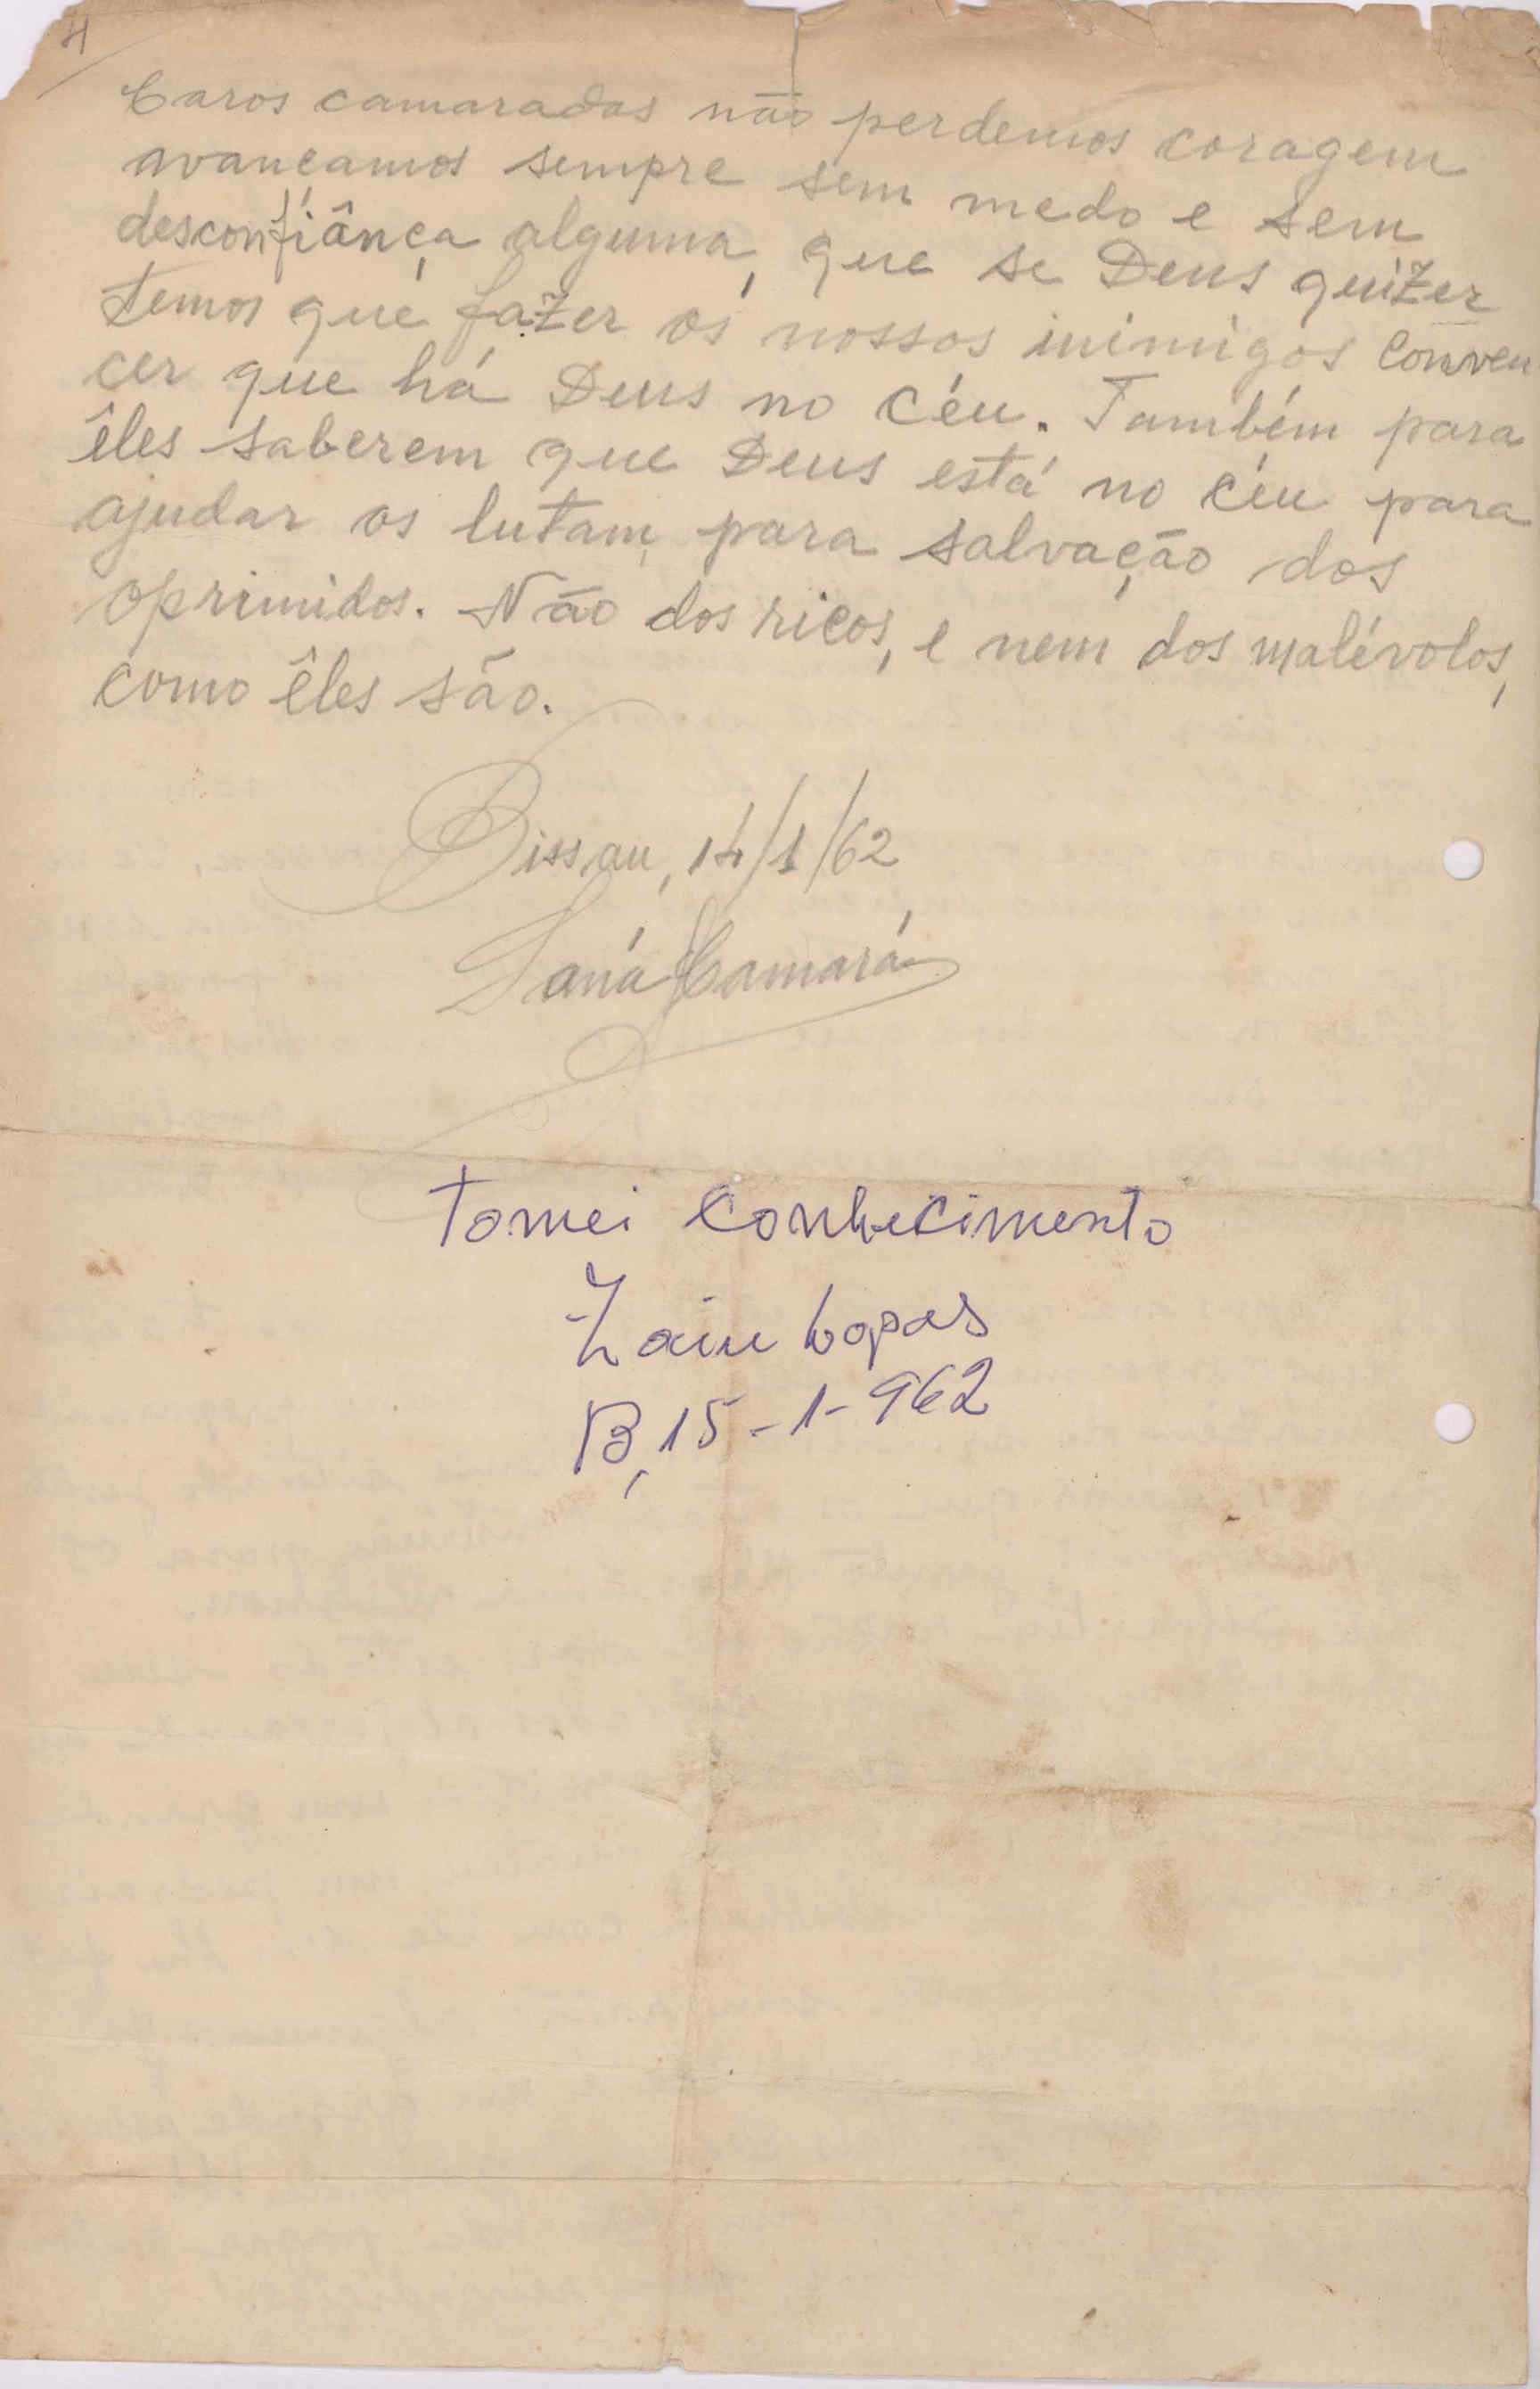 4
Caros camaradas não perdemos coragem
avancamos sempre sem medo e sem
desconfiânça alguma, que se Deus quizer
temos que fazer os nossos inimigos conven-
cer que há Deus no céu. Também para
êles saberem que Deus está no céu para
ajudar os lutam para salvação dos
oprimidos. Não dos ricos, e nem dos malévolos,
como êles são.
Bissau, 14/1/62
Saná Camará
Tomei conhecimento
Zain Lopes
B, 15-1-962